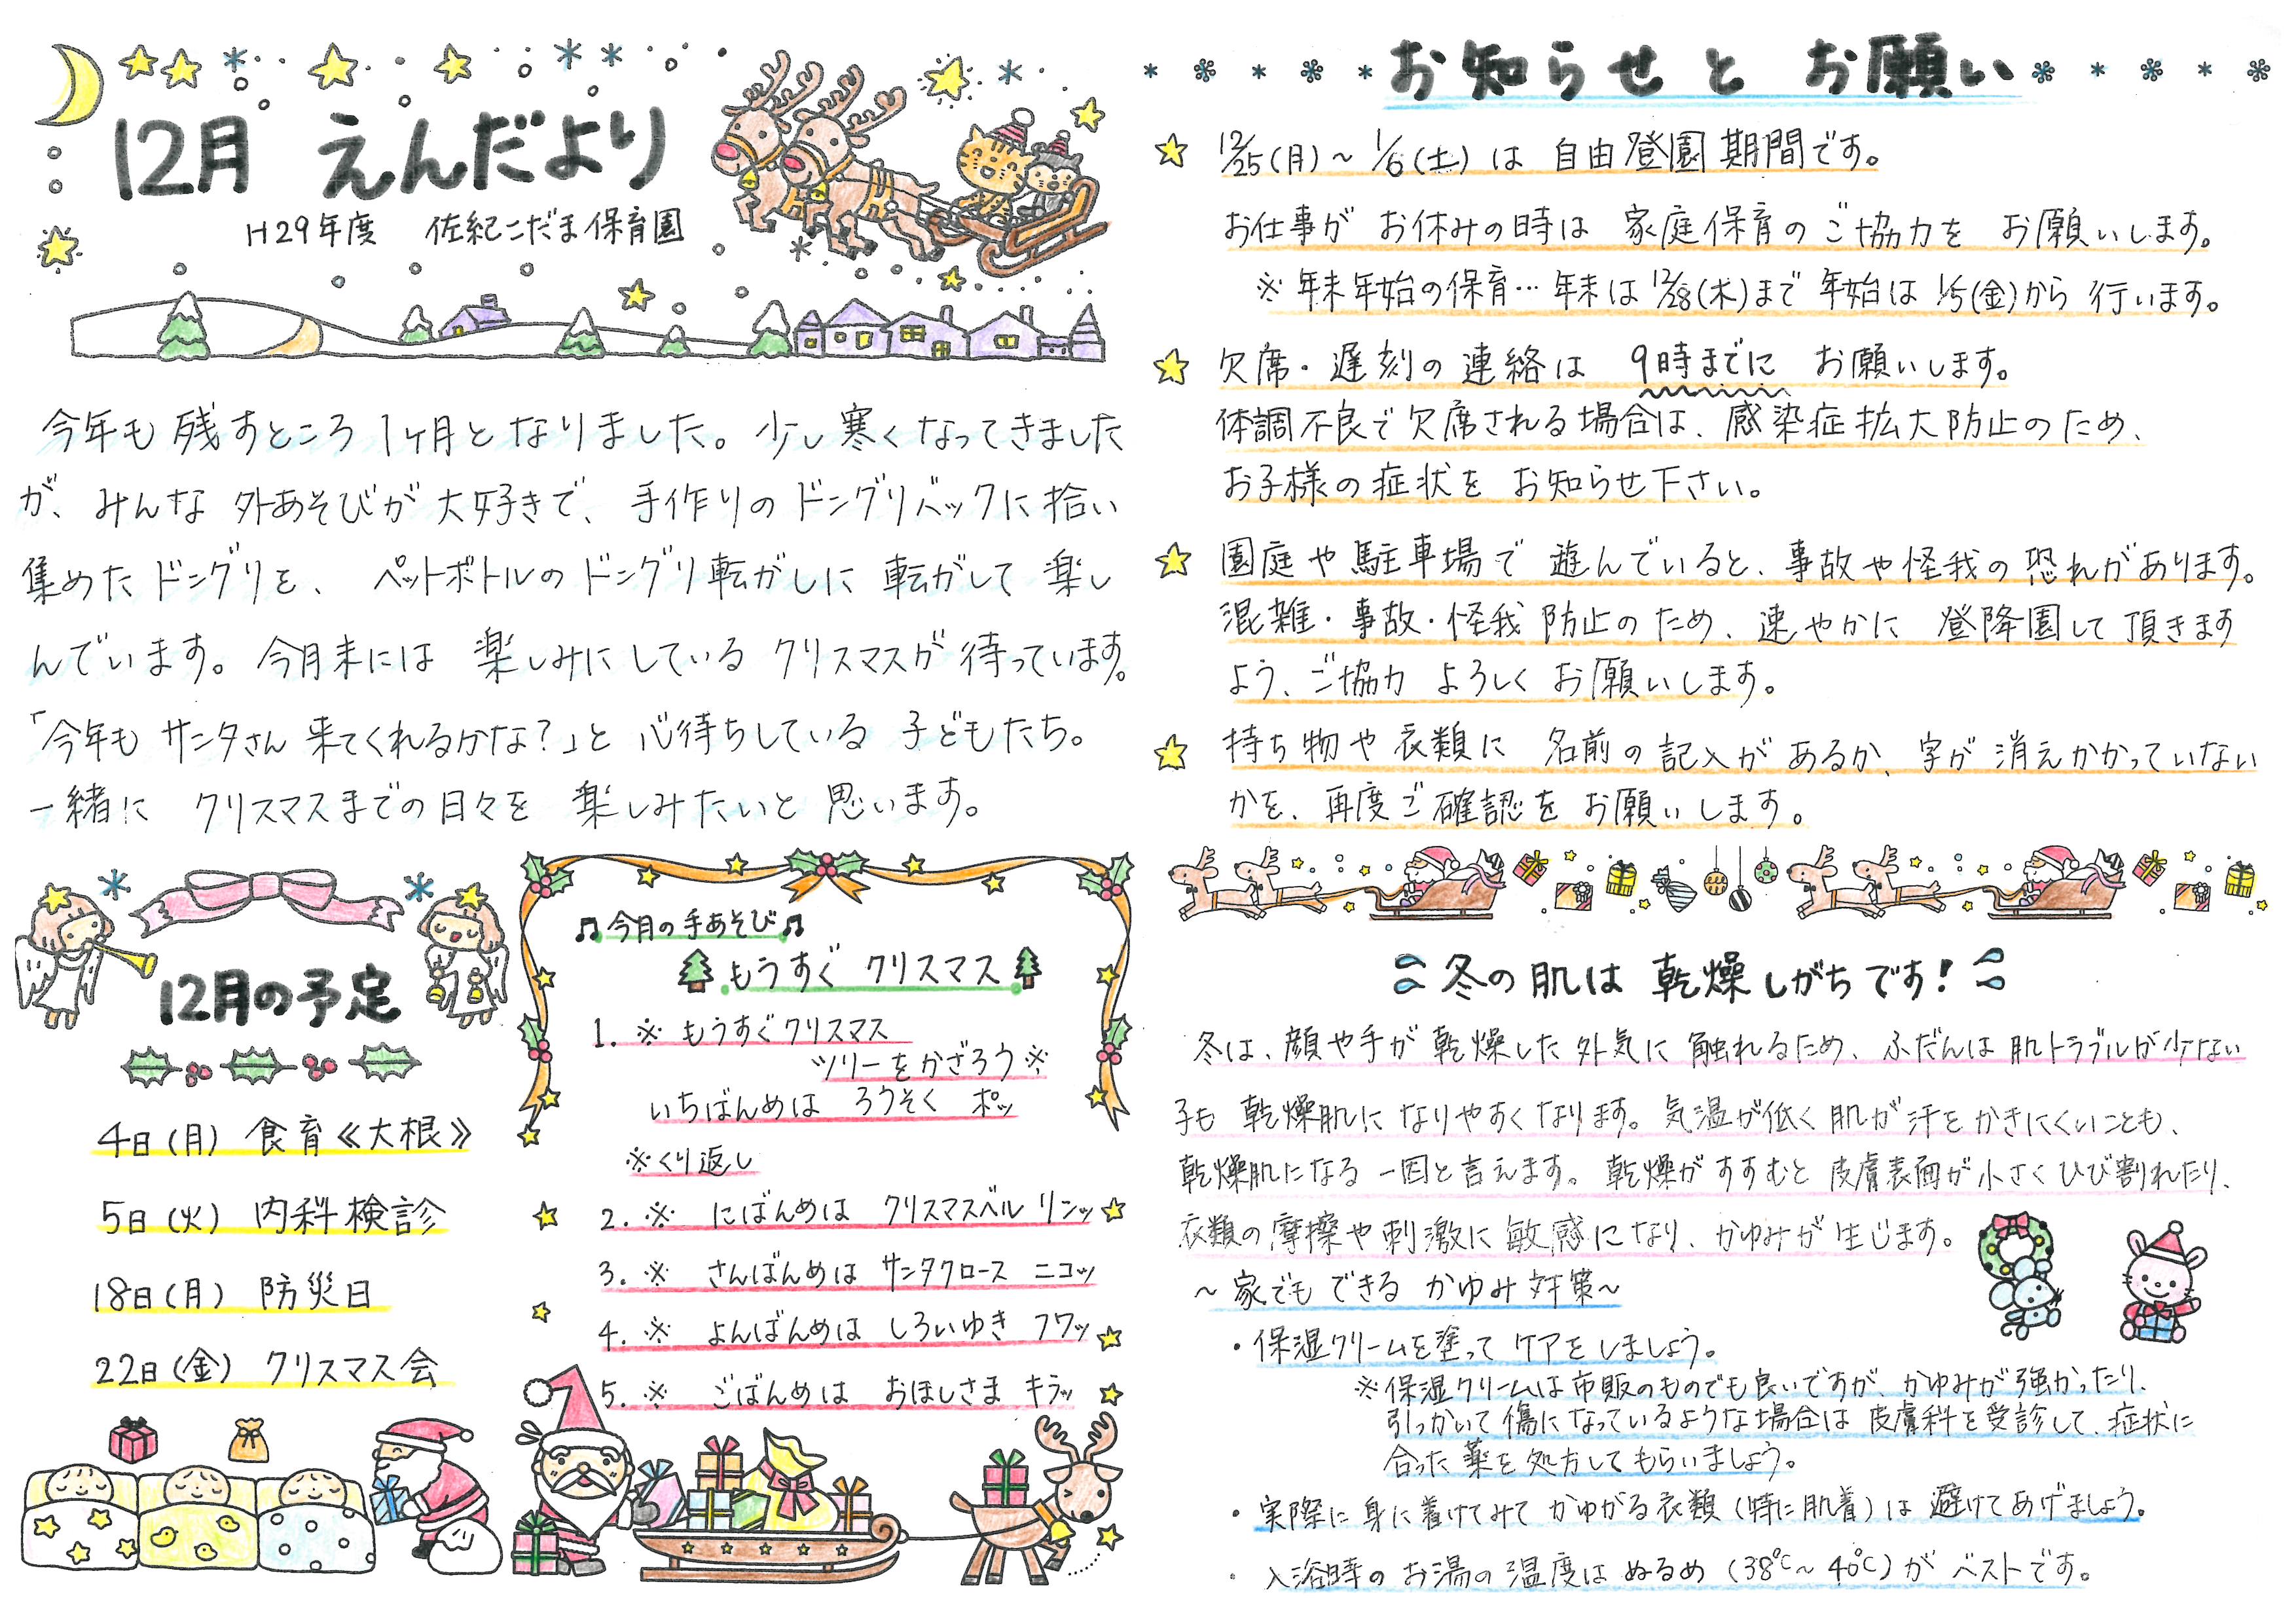 12月 えんだより
H29年度 佐紀こだま保育園
今年も残すところ1ヶ月となりました。少し寒くなってきました
が、みんな外あそびが大好きで、手作りのドングリバックに拾い
集めたドングリを、ペットボトルのドングリ転がしに転がして楽し
んでいます。今月末には楽しみにしているクリスマスが待っています。
「今年もサンタさん来てくれるかな?」と心待ちしている子どもたち。
一緒に クリスマスまでの日々を 楽しみたいと思います。
12月の予定
4日(月) 食育《大根》
5日(火) 内科検診
18日(月) 防災日
22日(金) クリスマス会
♫今月の手あそび♫
もうすぐ クリスマス
1. ※ もうすぐクリスマス
ツリーをかざろう※
いちばんめは ろうそく ポッ
※くり返し
2. ※ にばんめは クリスマスベル リンッ
3. ※ さんばんめは サンタクロース ニコッ
4. ※ よんばんめは しろいゆき フワッ
5. ※ ごばんめは おほしさま キラッ
お知らせ と お願い
12/25(月)~1/6(土)は 自由登園期間です。
お仕事が お休みの時は 家庭保育のご協力を お願いします。
※年末年始の保育…年末は12/28(木)まで 年始は1/5(金)から行います。
欠席・遅刻の連絡は 9時までに お願いします。
体調不良で欠席される場合は、感染症拡大防止のため、
お子様の症状を お知らせ下さい。
園庭や駐車場で遊んでいると、事故や怪我の恐れがあります。
混雑・事故・怪我防止のため、速やかに 登降園して頂きます
よう、ご協力 よろしくお願いします。
持ち物や衣類に 名前の記入があるか、字が消えかかっていない
かを、再度ご確認をお願いします。
冬の肌は乾燥しがちです!
冬は、顔や手が乾燥した外気に触れるため、ふだんは肌トラブルが少ない
子も乾燥肌になりやすくなります。気温が低く肌が汗をかきにくいことも、
乾燥肌になる一因と言えます。乾燥がすすむと皮膚表面が小さくひび割れたり、
衣類の摩擦や刺激に敏感になり、かゆみが生じます。
~家でもできる かゆみ対策~
・保湿クリームを塗ってケアをしましょう。
※保湿クリームは市販のものでも良いですが、かゆみが強かったり、
引っかいて傷になっているような場合は皮膚科を受診して、症状に
合った薬を処方してもらいましょう。
・実際に身に着けてみてかゆがる衣類(特に肌着)は避けてあげましょう。
・入浴時のお湯の温度はぬるめ(38℃~40℃)がベストです。